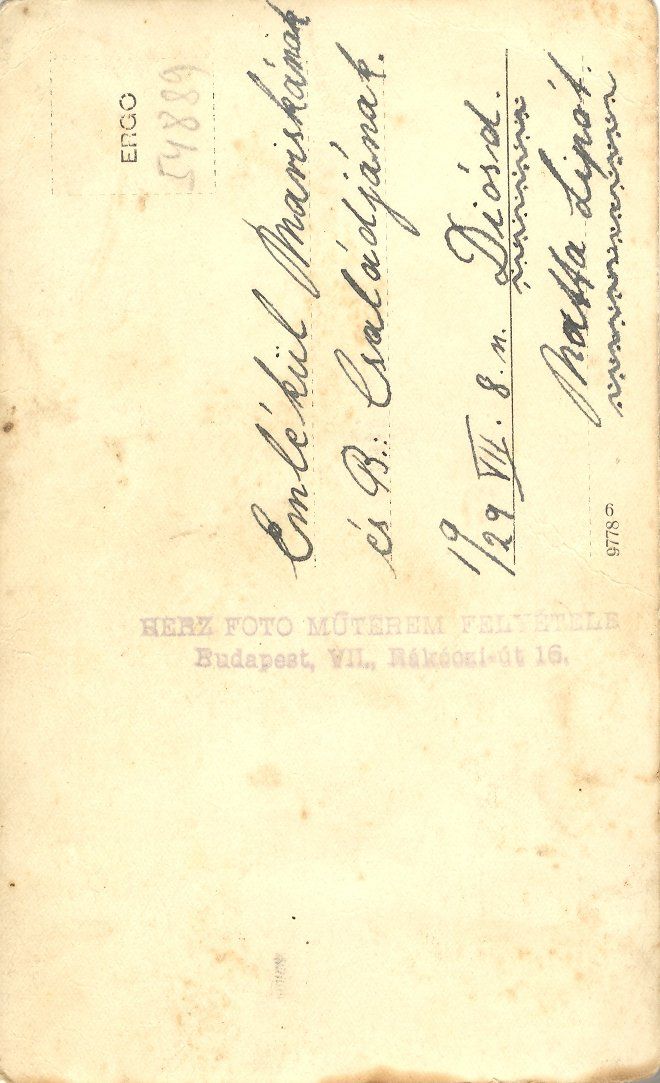 ERGO
54889
Emlékül Mariskának
és B.: Családjának.
19/29 VII. 8.n. Diósd.
Matta Lipót.
97786
HERZ FOTO MŰTEREM FELVÉTELE
Budapest, VII., Rákóczi-út 16.